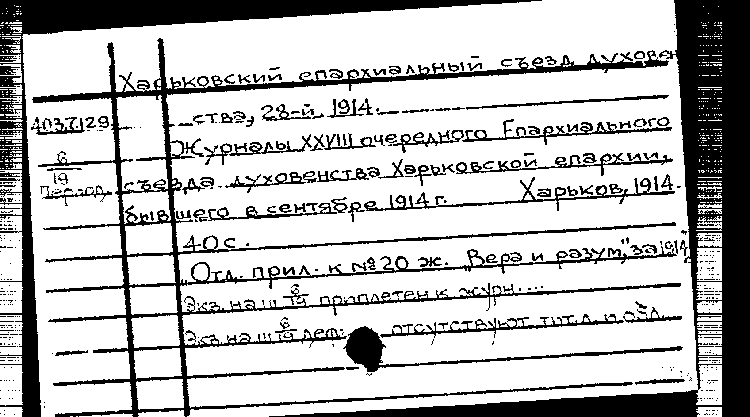 Харьковский епархиальный съезд духовен
ства, 28-й. 1914.
Журналы XXVIII очередного Епархиального
съезда духовенства Харьковской епархии,
бывшего в сентябре 1914 г. Харьков, 1914.
40 с.
Отд. прил. к № 20 ж. "Вера и разум," за 1914
Экз. на ш 6/19 приплетен к журн....
Экз. на ш 6/19 деп: отсутствуют тит. л. и обл.
4037129
6/19
период.